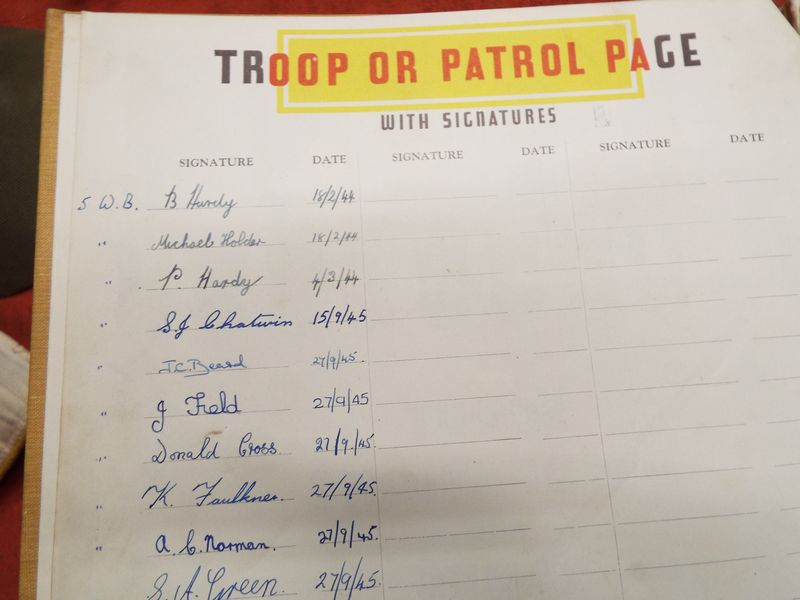 TROOP OR PATROL PAGE
WITH SIGNATURES
SIGNATURE DATE SIGNATURE DATE SIGNATURE DATE
5 W.B. B Hardy 18/2/44
" Michael Holder 18/2/44
" P. Hardy 4/3/44
" S.J Chatwin 15/9/45
" J.C. Beard 27/9/45.
" J Field 27/9/45
" Donald Cross. 27/9/45.
" K. Faulkner. 27/9/45.
" A. C. Norman. 27/9/45.
S. A. Green. 27/9/45.